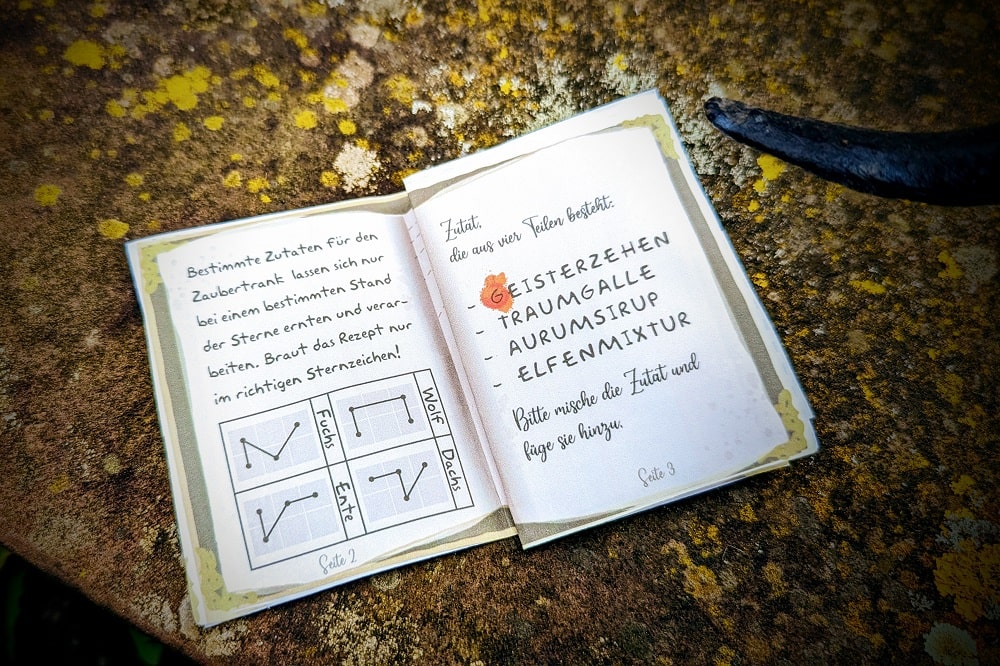 Bestimmte Zutaten für den
Zaubertrank lassen sich nur
bei einem bestimmten Stand
der Sterne ernten und verar-
beiten. Braut das Rezept nur
im richtigen Sternzeichen!
Fuchs
Wolf
Ente
Dachs
Seite 2
Zutat,
die aus vier Teilen besteht:
- GEISTERZEHEN
- TRAUMGALLE
- AURUMSIRUP
- ELFENMIXTUR
Bitte mische die Zutat und
füge sie hinzu.
Seite 3